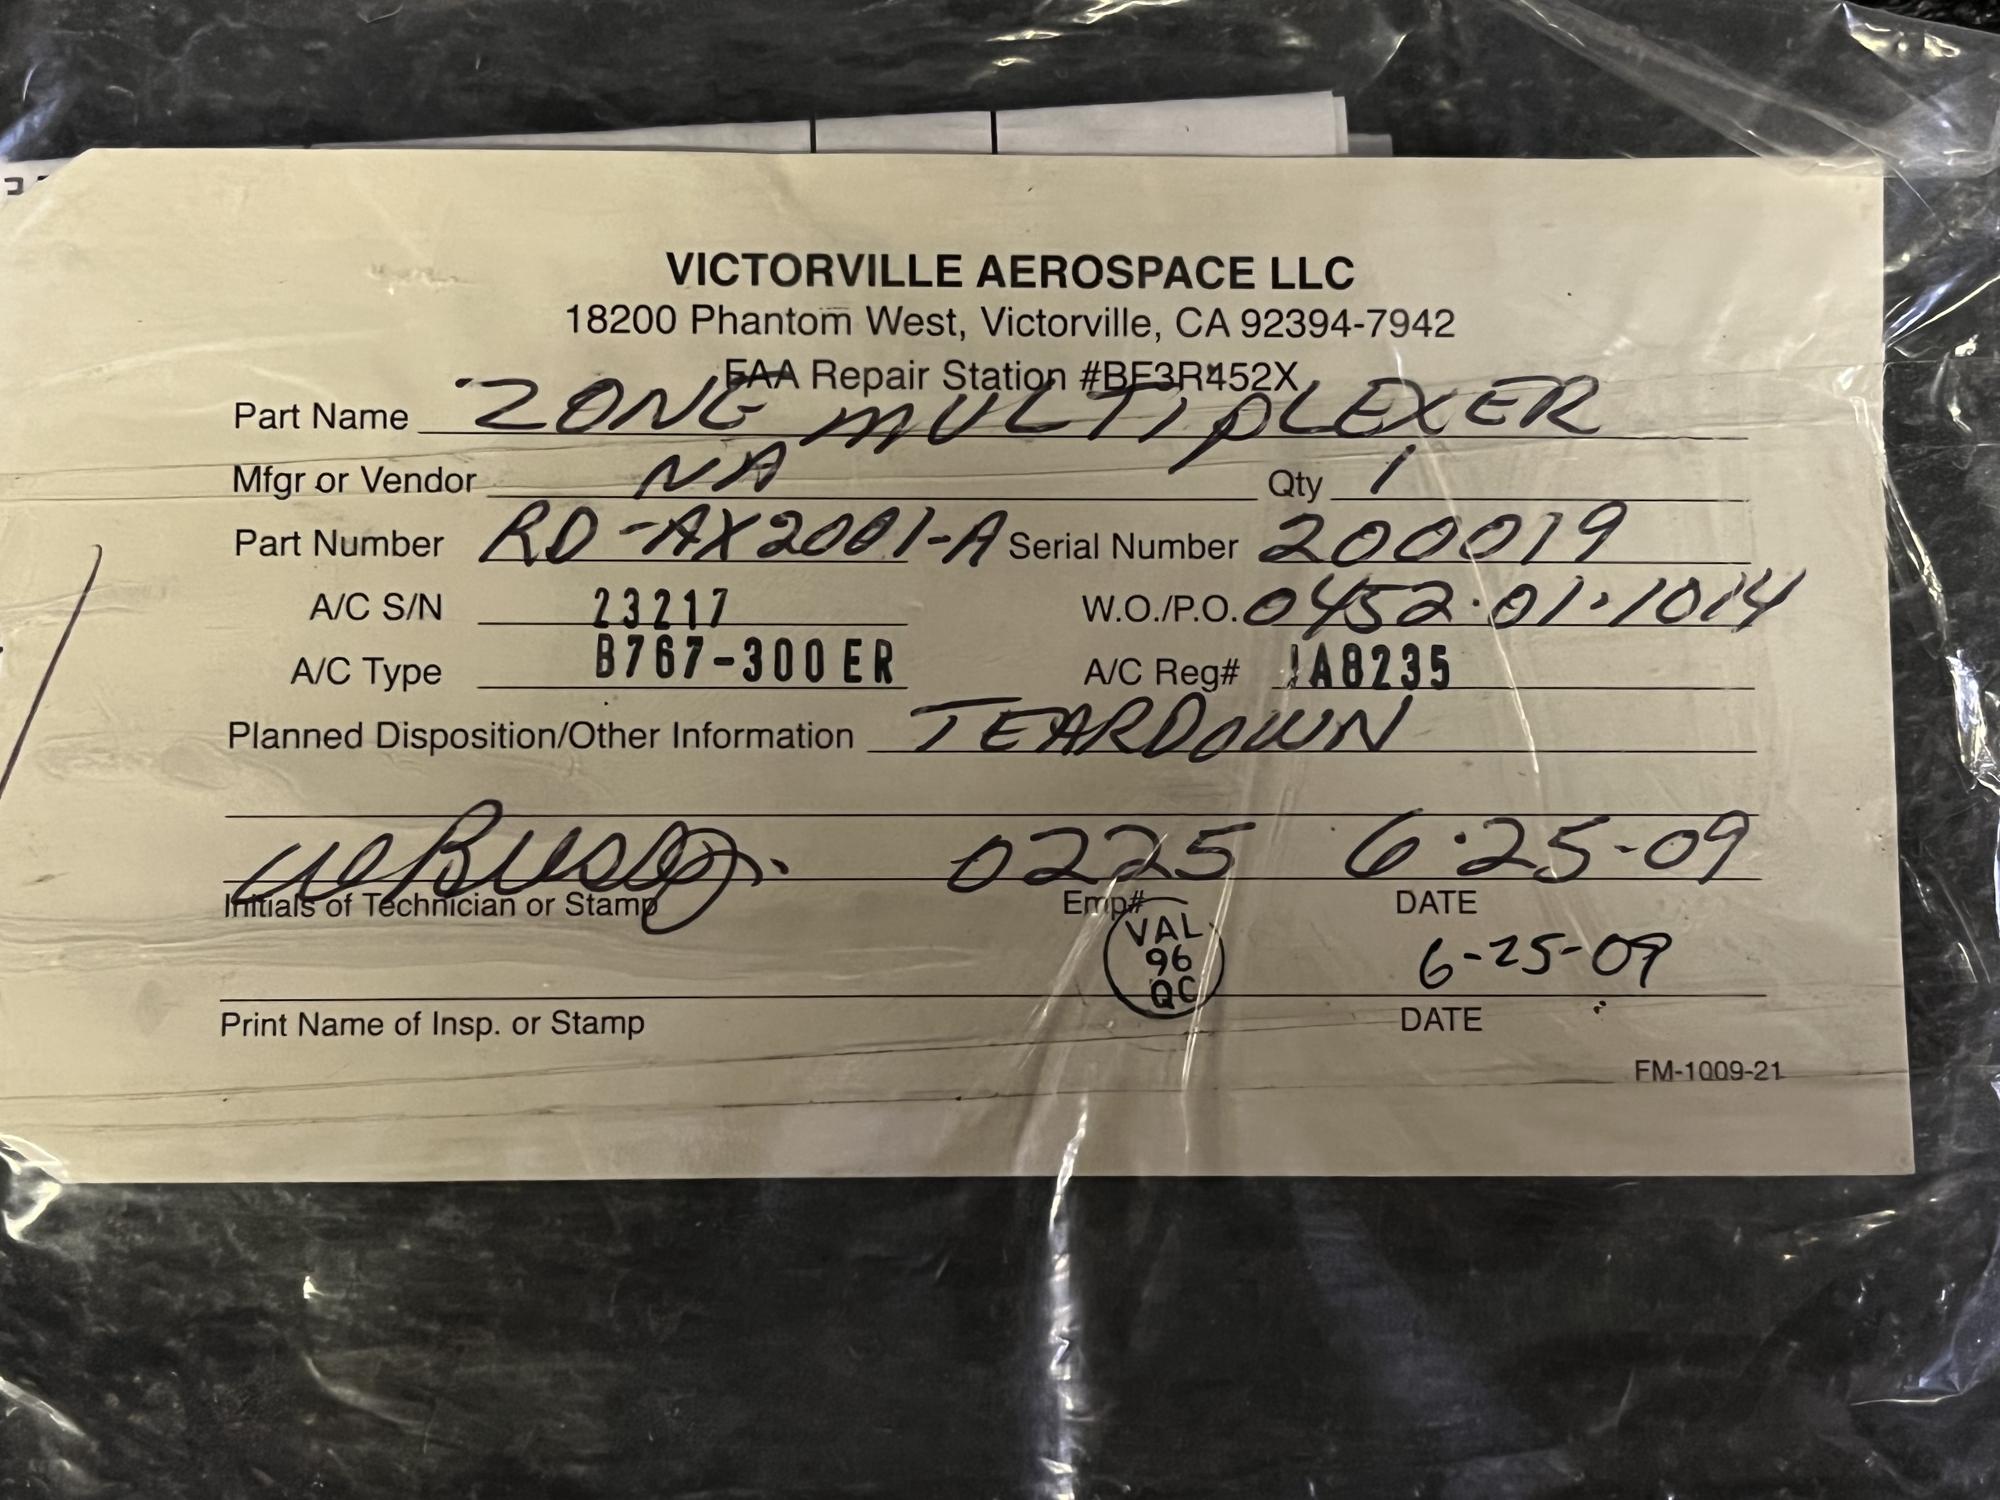 VICTORVILLE AEROSPACE LLC
18200 Phantom West, Victorville, CA 92394-7942
FAA Repair Station #BF3R452X
Part Name ZONE MULTIPLEXER
Mfgr or Vendor NA Qty 1
Part Number RD-AX2001-A Serial Number 200019
A/C S/N 23217 W.O./P.O. 0452.01.1014
A/C Type B767-300ER A/C Reg# JA8235
Planned Disposition/Other Information TEARDOWN
0225 6.25-09
Initials of Technician or Stamp Emp# DATE
VAL
96
QC
6-25-09
Print Name of Insp. or Stamp DATE
FM-1009-21